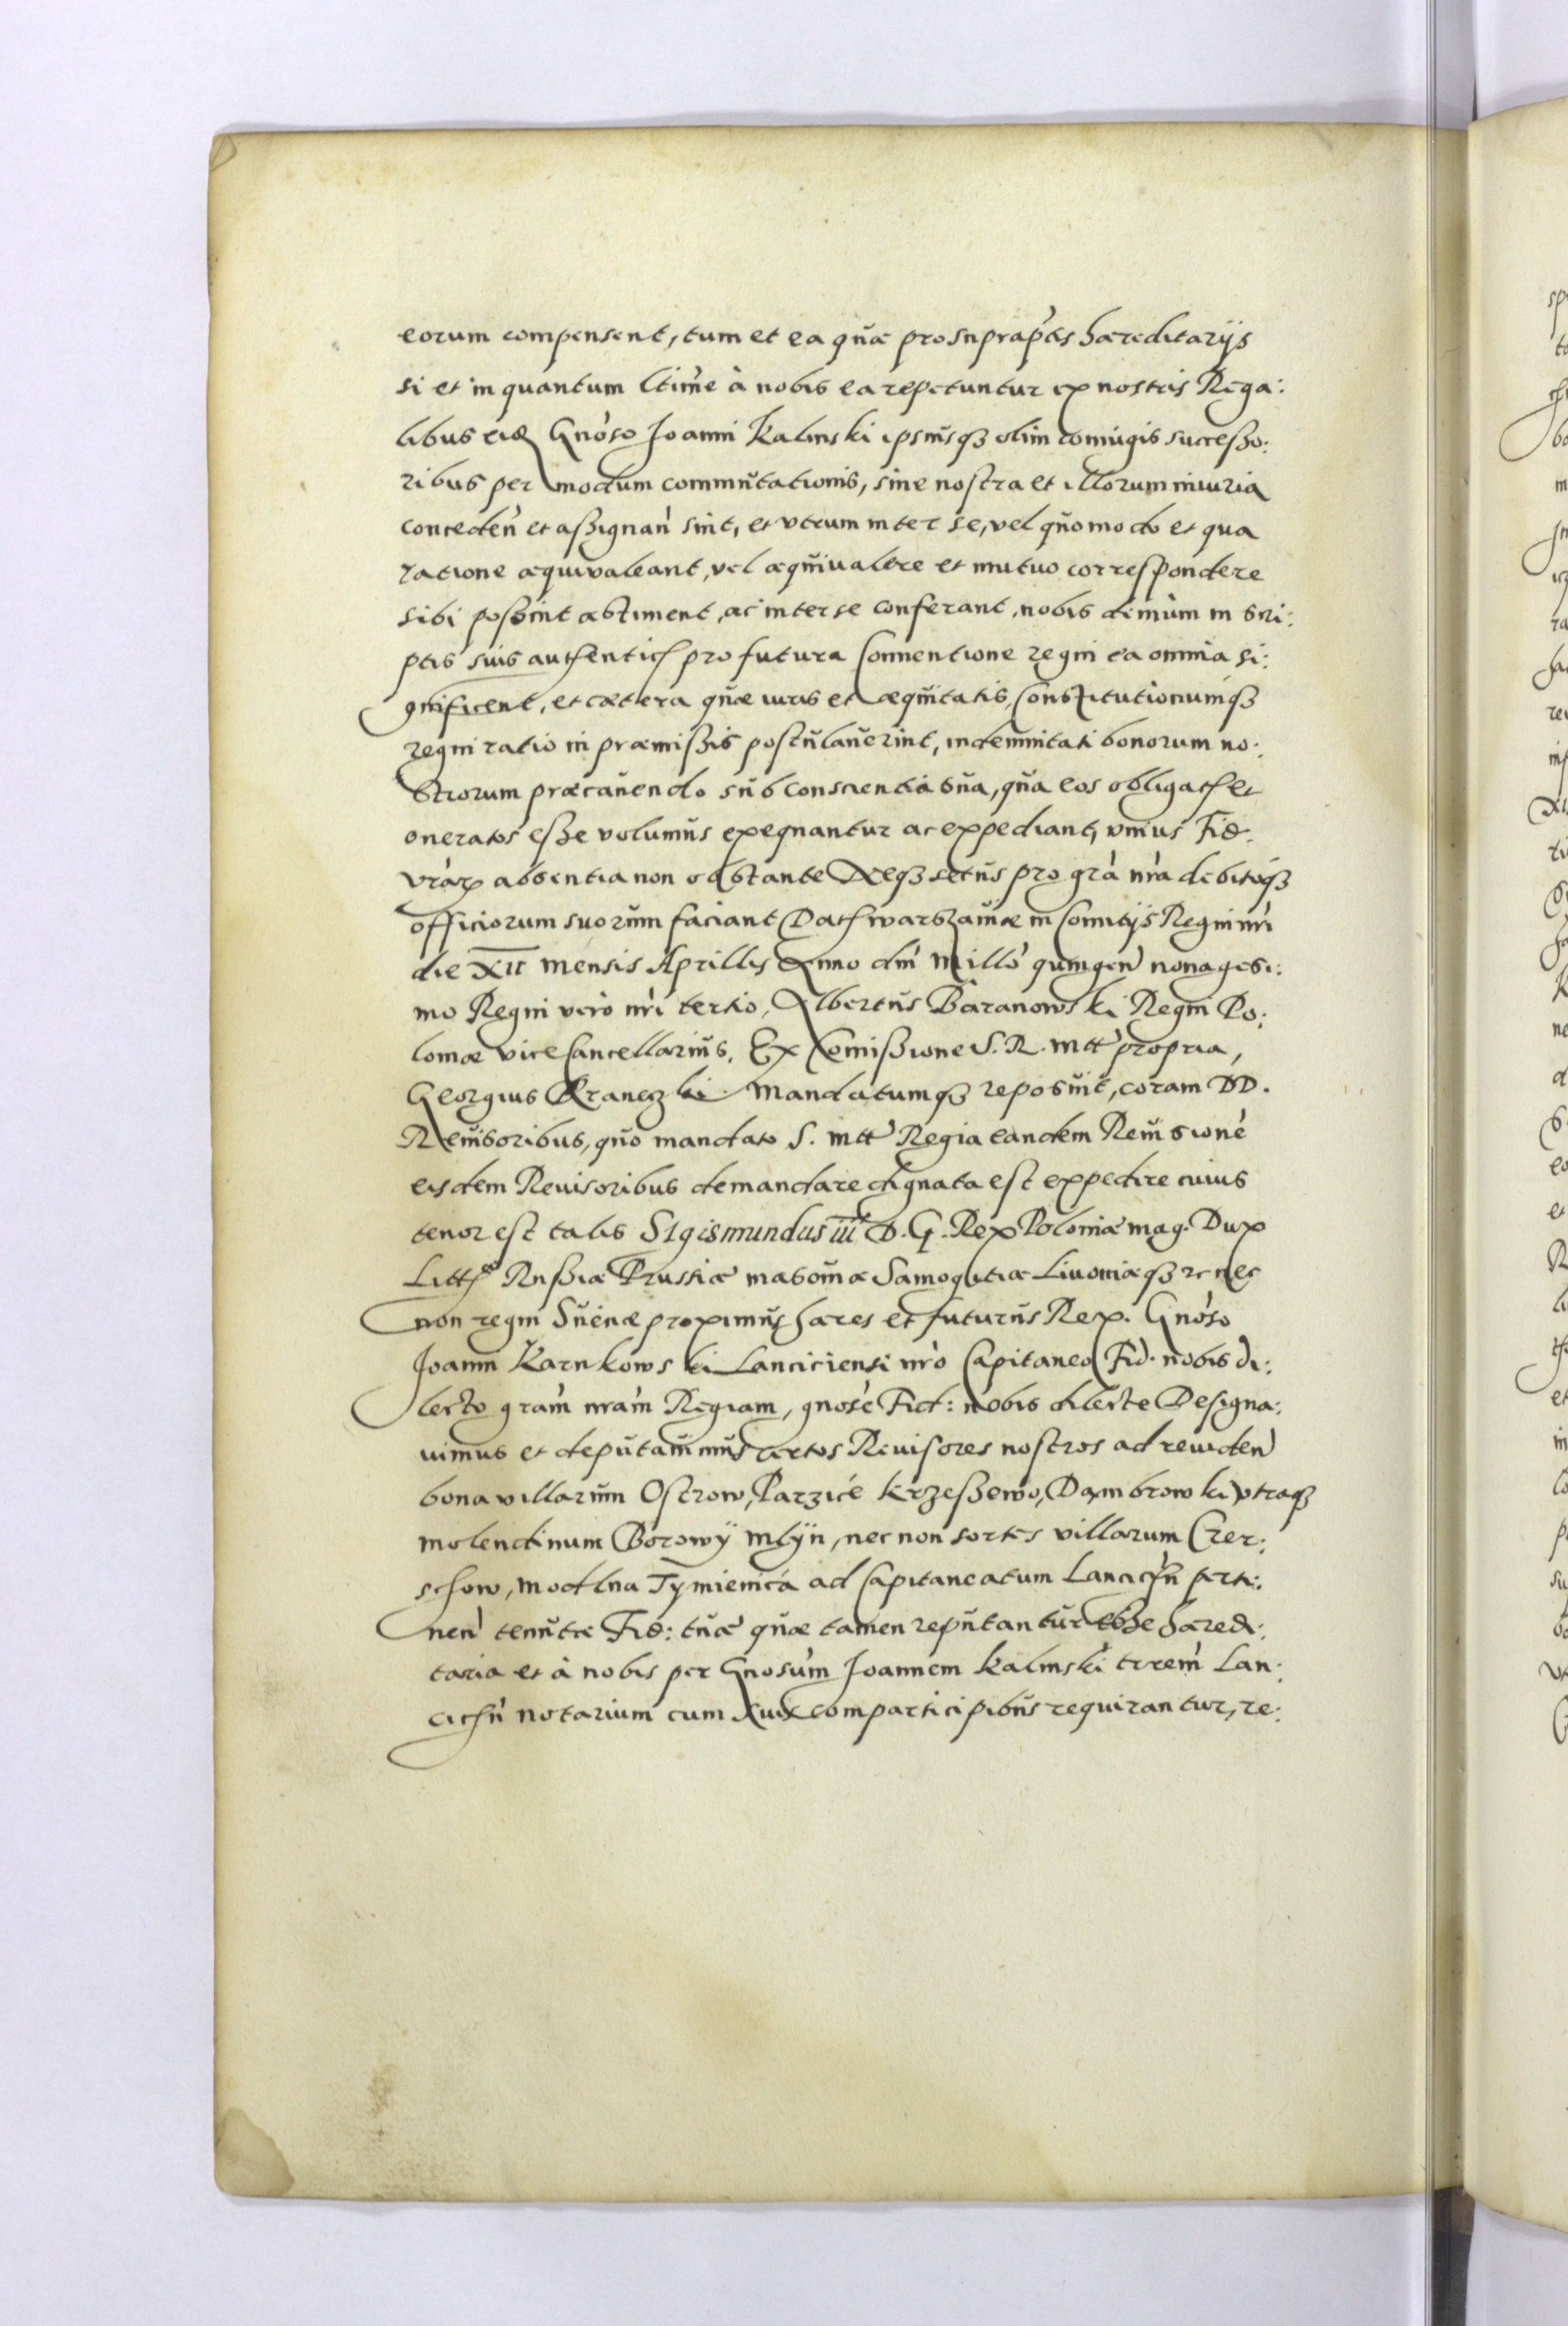 eorum compensent, tum et ea quæ pro supraptis hæreditarijs
si et in quantum ltime à nobis ea repetuntur ex nostris Rega:
libus Gnoso Joanni Kalinski ipsiusqȝ olim coniugis successo:
ribus per modum commutationis, sine nostra et illorum iniuria
conceden et assignan sint, et vtrum inter se, vel quomodo et qua
ratione æquivaleant, vel æquivalere et mutuo correspondere
sibi possint æstiment, ac inter se conferant, nobis demùm in scri:
ptis suis authentich pro futura Conuentione regni ea omnia si:
gnificent, et cætera quæ iuris et æquitatis, Constitutionumqȝ
regni ratio in præmissis postulauerint, indemnitati bonorum no:
strorum præcauendo sub conscientia sua, qua eos obligatch et
oneratos esse volumus exequantur ac expediant, vnius Fid.
vrarx absentia non obstante Neqȝ secus pro gra nra debitoqȝ
officiorum suorum faciant Datch warszauiæ in Comitijs Regni nri
die XII mensis Aprillis Anno dni Millo quingen nonagesi:
mo Regni verò nri tertio, Albertus Baranowski Regni Po:
loniæ viceCancellarius, Ex Comissione S. R. Mtt propria,
Georgius Kranczki. Mandatumqȝ reposuit, coram DD.
Reuisoribus, quo mandato S. Mtt Regia eandem Reuisione
eisdem Reuisoribus demandare dignata est expedire cuius
tenor est talis SIgismundus iii D. G. Rex Poloniæ mag. Dux
Litth Russiæ Prussiæ masouiæ Samogitiæ Livoniæqȝ zc nec
non regni Sueciæ proximus hæres et futurus Rex. Gnoso
Joanni Karnkowski Lanciciensi nro Capitaneo Fid. nobis di:
lecto gram nram Regiam, gnose Fid: nobis dilecte Designa:
uimus et deputauimus certos Reuisores nostros ad reuiden
bona villarum Ostrow, Parzice Krzeszewo, Dambrowki vtraqȝ
molendinum Borowÿ mlÿn, nec non sortes villarum Czer:
schow, modlna Tymienica ad Capitaneatum Lancichn perti:
nen tenutæ Fid: tuæ quæ tamen reputantur esse hæredi:
taria et à nobis per Gnosum Joannem Kalinski trem Lan:
cichn notarium cum suis comparticipibus requirantur, re: